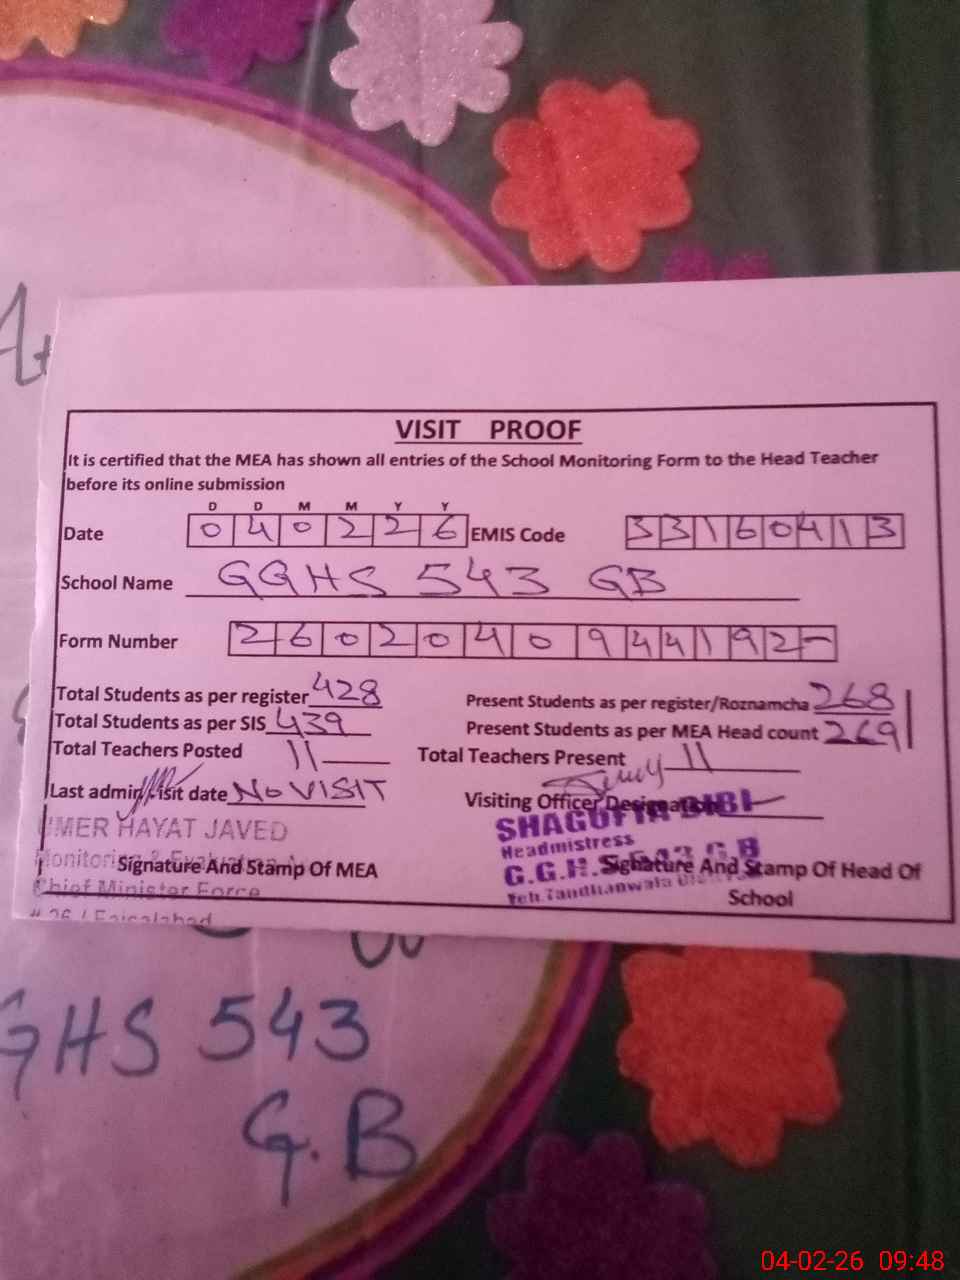 VISIT PROOF
It is certified that the MEA has shown all entries of the School Monitoring Form to the Head Teacher
before its online submission
D D M M Y Y
Date 040226 EMIS Code 33160413
School Name GGHS 543 GB
Form Number 260204094419 2-
Total Students as per register 428 Present Students as per register/Roznamcha 268
Total Students as per SIS 439 Present Students as per MEA Head count 269
Total Teachers Posted 11 Total Teachers Present 11
Last admin visit date No VISIT Visiting Officer Designation
UMER HAYAT JAVED
SHAGUFTA BIBI
Headmistress
G.G.H.S 543 G.B
Signature And Stamp Of MEA Signature And Stamp Of Head Of
School
Chief Minister Force
# 26 / Faisalabad
Teh.Tandlianwala
GHS 543
G.B
04-02-26 09:48